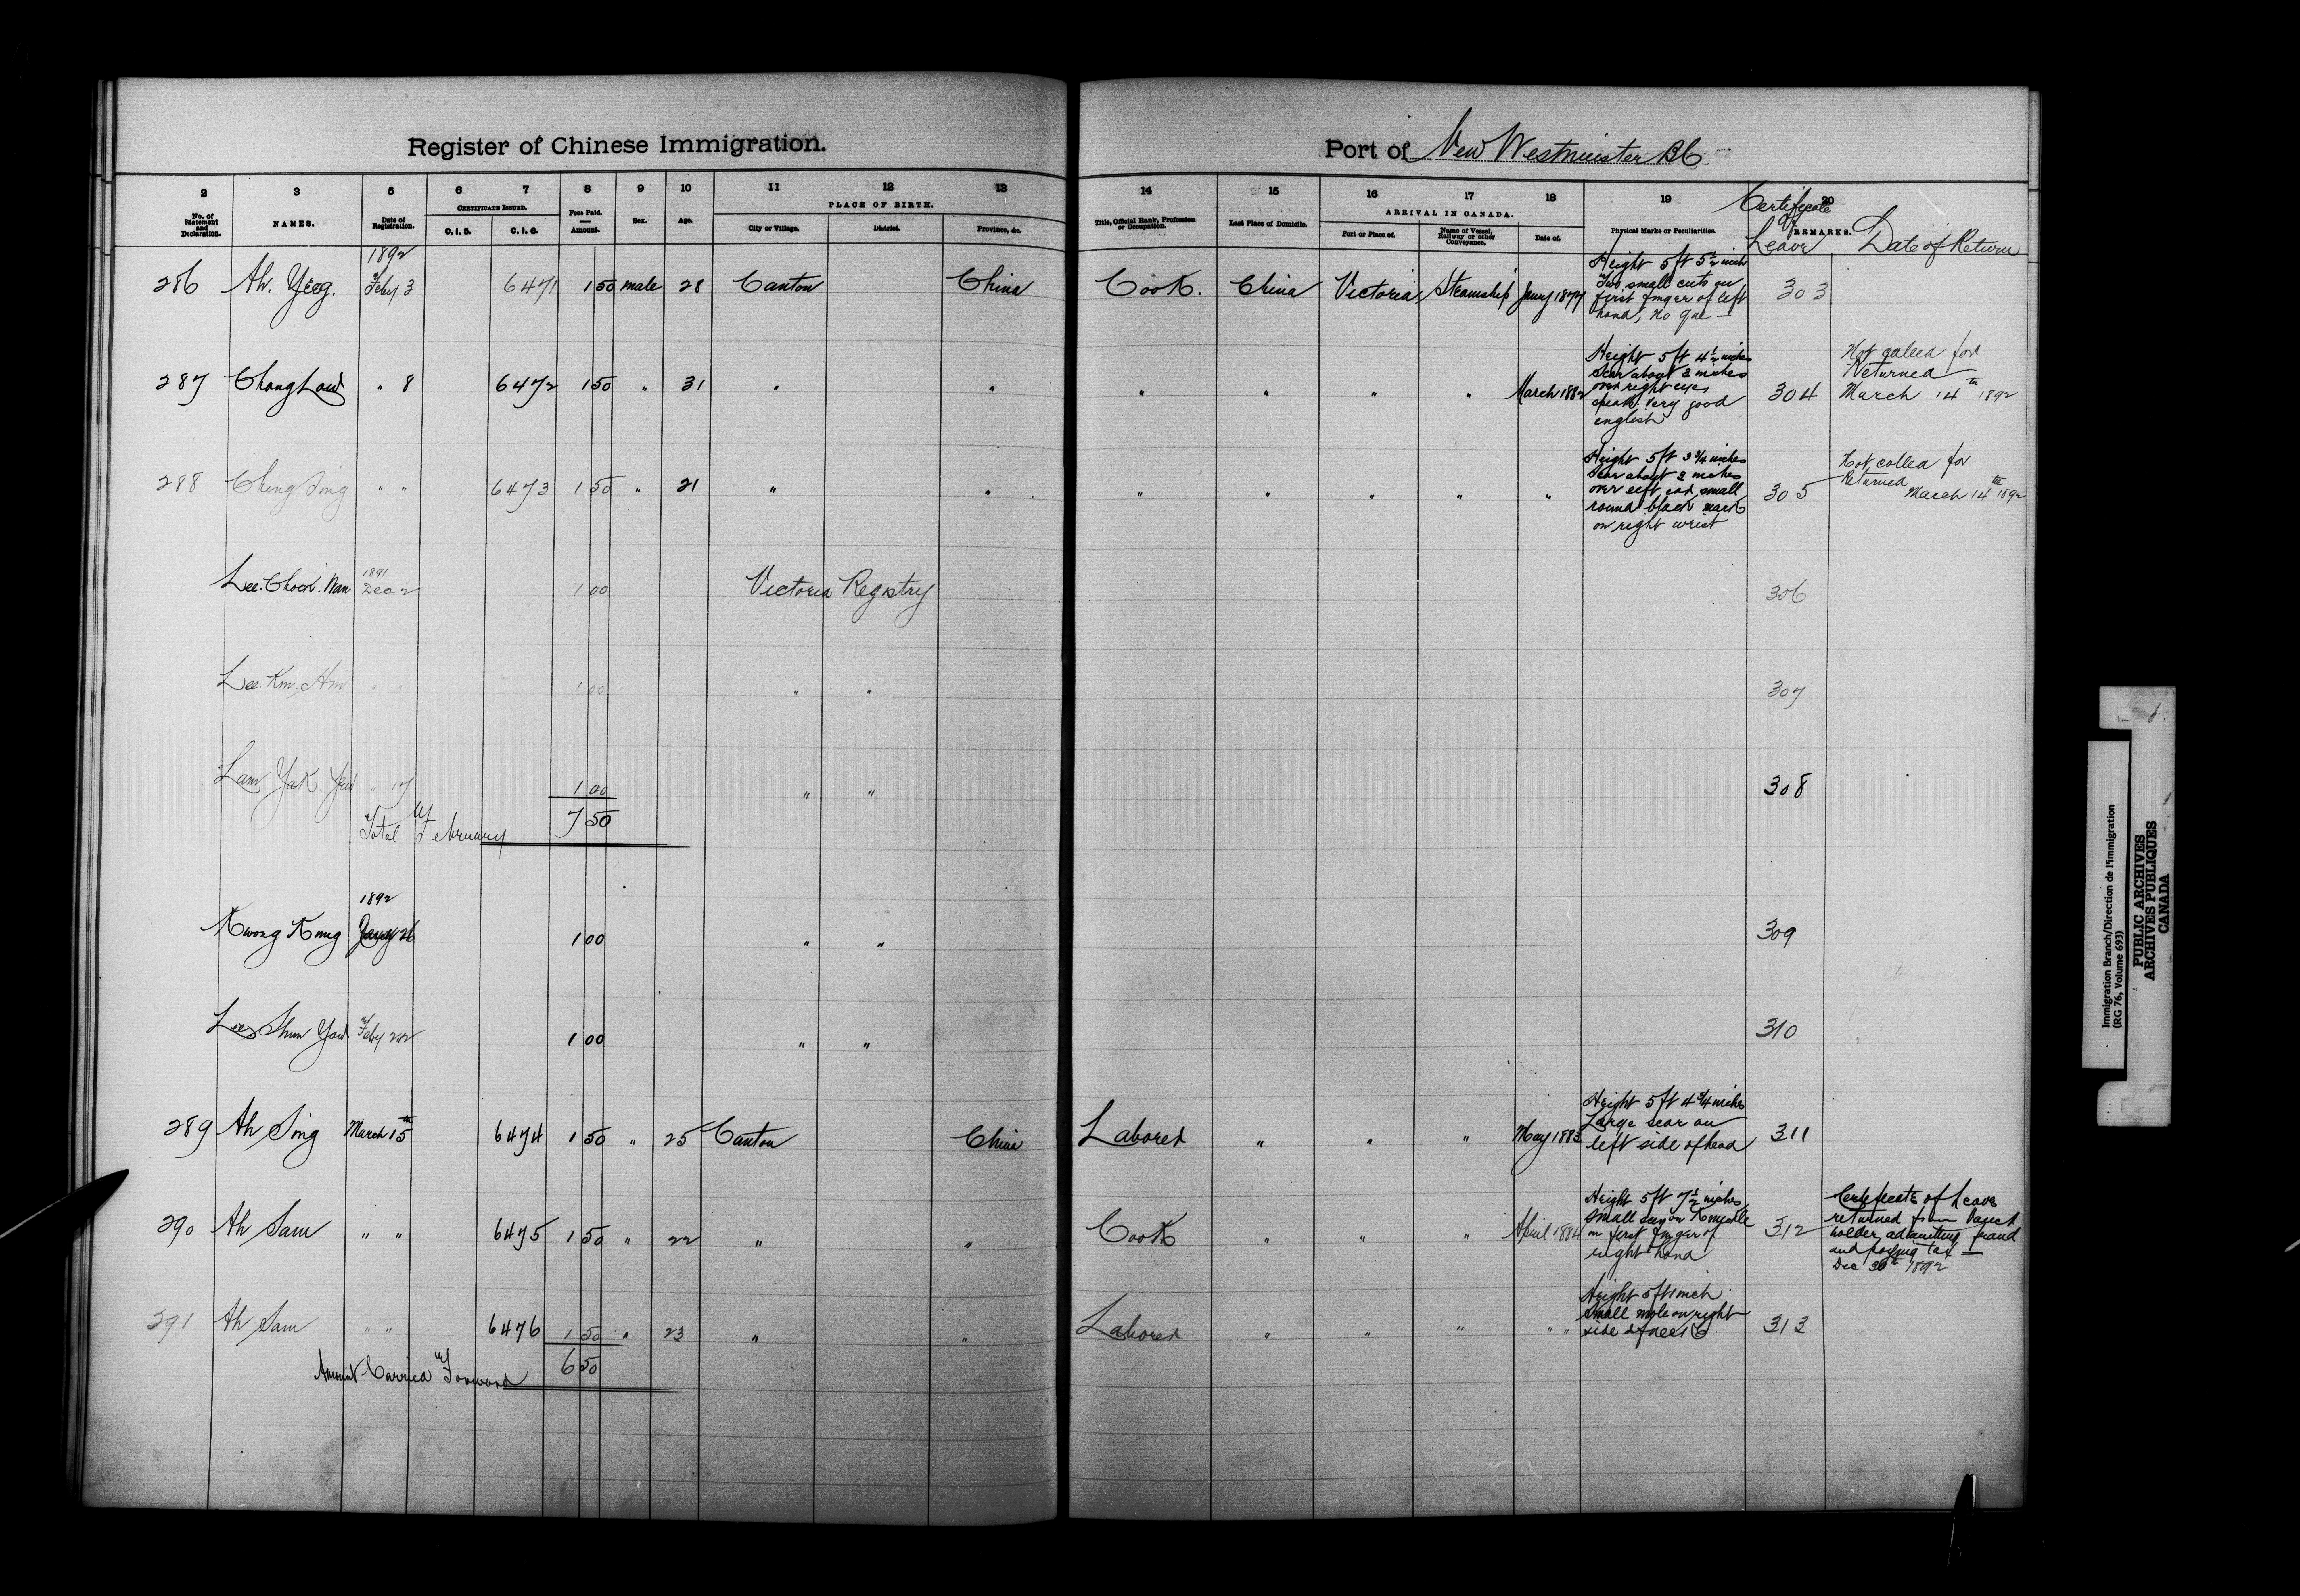 Register of Chinese Immigration.
Port of New Westminster BC
2 3 5 6 7 8 9 10 11 12 13
No. of Statement and Declaration. NAMES. Date of Registration. CERTIFICATE ISSUED. C. I. 5. C. I. 6. Fees Paid. Amount. Sex. Age. PLACE OF BIRTH. City or Village. District. Province, &c.
14 15 16 17 18 19 20
Title, Official Rank, Profession or Occupation. Last Place of Domicile. ARRIVAL IN CANADA. Port or Place of. Name of Vessel, Railway or other Conveyance. Date of. Physical Marks or Peculiarities. REMARKS.
Certificate of Leave Date of Return
1892
286 Ah. Yeeg. Feby 3 6471 1 50 male 28 Canton China Cook. China Victoria Steamship Jany 1877
Height 5 ft 5 1/2 inch
Two small cuts on
first finger of left
hand, no que —
303
287 Chong Low " 8 6472 1 50 " 31 " " " " " " March 1882
Height 5 ft 4 1/2 inches
Scar about 2 inches
over right eye,
speaks very good
english
304
Not called for
Returned
March 14th 1892
288 Ching Sing " " 6473 1 50 " 21 " " " " " " "
Height 5 ft 3 3/4 inches
Scar about 2 inches
over left ear small
round black mark
on right wrist
305
Not called for
Returned
March 14th 1892
1891
Lee. Chock. Man Dec 2 1 00 Victoria Registry 306
Lee. Kim. Him " " 1 00 " " 307
Lum Yak. Yew " 17 1 00 " " 308
Total of February 7 50
1892
Kwong Kung Jany 26 1 00 " " 309
Lee Shun Yow Feby 22 1 00 " " 310
289 Ah Sing March 15th 6474 1 50 " 25 Canton China Laborer " " " May 1883
Height 5 ft 4 3/4 inches
Large scar on
left side of head
311
290 Ah Sam " " 6475 1 50 " 22 " " Cook " " " April 1884
Height 5 ft 7 1/2 inches
small on Knuckle
on first finger of
right hand
312
Certificate of Leave
returned from
holder, admitting fraud
and paying tax —
Dec 30th 1892
291 Ah Sam " " 6476 1 50 " 23 " " Laborer " " " " "
Height 5 ft 1 inch
small mole on right
side of neck
313
Amount Carried Forward 6 50
Immigration Branch/Direction de l'immigration
(RG 76, Volume 693)
PUBLIC ARCHIVES
ARCHIVES PUBLIQUES
CANADA